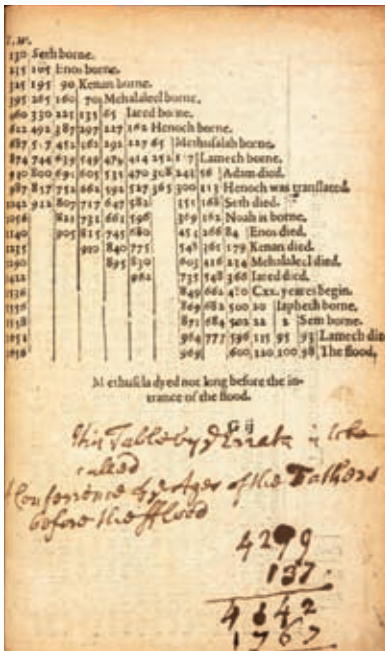 130 Seth borne.
235 105 Enos borne.
325 195 90 Kenan borne.
395 265 160 70 Mehalaleel borne.
460 330 225 135 65 Iared borne.
622 492 387 297 227 162 Henoch borne.
687 557 452 362 292 227 65 Methusalah borne.
874 744 639 549 479 414 252 187 Lamech borne.
930 800 695 605 535 470 308 243 56 Adam died.
987 857 752 662 592 527 365 300 113 Henoch was translated.
1042 912 807 717 647 582 355 168 Seth died.
1056 821 731 661 596 369 182 Noah is borne.
1140 905 815 745 680 453 266 84 Enos died.
1235 910 840 775 548 361 179 Kenan died.
1290 895 830 603 416 234 Mehalaleel died.
1422 962 735 548 366 Iared died.
1536 849 662 480 Cxx. yeares begin.
1556 869 682 500 20 Iaphech borne.
1558 871 684 502 22 2 Sem borne.
964 777 595 115 95 93 Lamech die
1656 969 600 120 100 98 The flood.
Methusala dyed not long before the in-
trance of the flood.
G ij
This Table by ye Errata is to be
called
Conference of ye Ages of the Fathers
before the Flood
4299
137
4342
1767